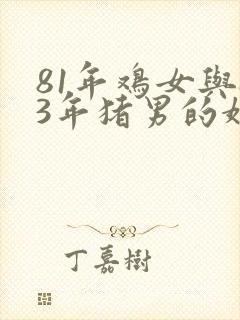 81年鸡女與
3年猪男的
丁嘉樹